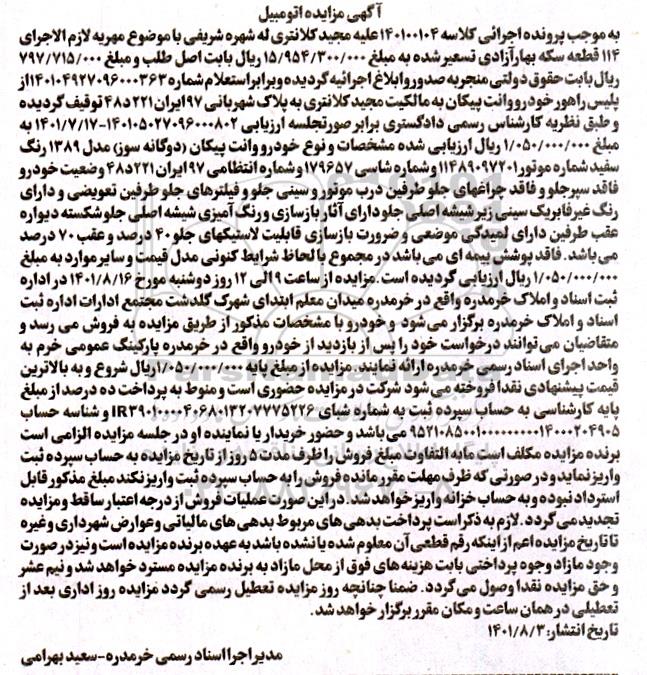 آگهی مزایده اتومبیل
به موجب پرونده اجرائی کلاسه ۱۴۰۱۰۰۱۰۴ علیه مجید کلانتری له شهره شریفی با موضوع مهریه لازم الاجرای
۱۱۴ قطعه سکه بهارآزادی تسعیر شده به مبلغ ۱۵/۹۵۴/۳۰۰/۰۰۰ ریال بابت اصل طلب و مبلغ ۷۹۷/۷۱۵/۰۰۰
ریال بابت حقوق دولتی منجر به صدور و ابلاغ اجرائیه گردیده و برابر استعلام شماره ۱۴۰۱۰۴۹۲۷۰۹۶۰۰۰۳۶۳ از
پلیس راهور خودرو وانت پیکان به مالکیت مجید کلانتری به پلاک شهربانی ۹۷ ایران ۲۲۱د۴۸ توقیف گردیده
و طبق نظریه کارشناس رسمی دادگستری برابر صورتجلسه ارزیابی ۱۴۰۱۰۵۰۲۷۰۹۶۰۰۰۸۰۲-۱۴۰۱/۷/۱۷ به
مبلغ ۱/۰۵۰/۰۰۰/۰۰۰ ریال ارزیابی شده مشخصات و نوع خودرو وانت پیکان (دوگانه سوز) مدل ۱۳۸۹ رنگ
سفید شماره موتور ۱۱۴۸۹۰۹۷۲۰۱ و شماره شاسی ۱۷۹۶۵۷ و شماره انتظامی ۹۷ ایران ۲۲۱د۴۸ وضعیت خودرو
فاقد سپر جلو و فاقد چراغهای جلو طرفین درب موتور و سینی جلو و فیلترهای جلو طرفین تعویضی و دارای
رنگ غیر فابریک سینی زیر شیشه اصلی جلو دارای آثار بازسازی و رنگ آمیزی شیشه اصلی جلو شکسته دیواره
عقب طرفین دارای لمیدگی موضعی و ضرورت بازسازی قابلیت لاستیکهای جلو ۴۰ درصد و عقب ۷۰ درصد
می باشد. فاقد پوشش بیمه ای می باشد در مجموع با لحاظ شرایط کنونی مدل قیمت و سایر موارد به مبلغ
۱/۰۵۰/۰۰۰/۰۰۰ ریال ارزیابی گردیده است. مزایده از ساعت ۹ الی ۱۲ روز دوشنبه مورخ ۱۴۰۱/۸/۱۶ در اداره
ثبت اسناد و املاک خرمدره واقع در خرمدره میدان معلم ابتدای شهرک گلدشت مجتمع ادارات اداره ثبت
اسناد و املاک خرمدره برگزار می شود و خودرو با مشخصات مذکور از طریق مزایده به فروش می رسد و
متقاضیان می توانند درخواست خود را پس از بازدید از خودرو واقع در خرمدره پارکینگ عمومی خرم به
واحد اجرای اسناد رسمی خرمدره ارائه نمایند. مزایده از مبلغ پایه ۱/۰۵۰/۰۰۰/۰۰۰ ریال شروع و به بالاترین
قیمت پیشنهادی نقدا فروخته می شود شرکت در مزایده حضوری است و منوط به پرداخت ده درصد از مبلغ
پایه کارشناسی به حساب سپرده ثبت به شماره شبای IR۳۹۰۱۰۰۰۰۴۰۶۸۰۱۳۲۰۷۷۷۵۲۲۶ و شناسه حساب
۹۵۲۱۰۸۵۰۰۱۰۰۰۰۰۰۰۰۱۴۰۰۰۲۰۴۹۰۵ می باشد و حضور خریدار یا نماینده او در جلسه مزایده الزامی است
برنده مزایده مکلف است مابه التفاوت مبلغ فروش را ظرف مدت ۵ روز از تاریخ مزایده به حساب سپرده ثبت
واریز نماید و در صورتی که ظرف مهلت مقرر مانده فروش را به حساب سپرده ثبت واریز نکند مبلغ مذکور قابل
استرداد نبوده و به حساب خزانه واریز خواهد شد. در این صورت عملیات فروش از درجه اعتبار ساقط و مزایده
تجدید می گردد. لازم به ذکر است پرداخت بدهی های مربوط بدهی های مالیاتی و عوارض شهرداری و غیره
تا تاریخ مزایده اعم از اینکه رقم قطعی آن معلوم شده یا نشده باشد به عهده برنده مزایده است و نیز در صورت
وجود مازاد وجوه پرداختی بابت هزینه های فوق از محل مازاد به برنده مزایده مسترد خواهد شد و نیم عشر
و حق مزایده نقدا وصول می گردد. ضمنا چنانچه روز مزایده تعطیل رسمی گردد مزایده روز اداری بعد از
تعطیلی در همان ساعت و مکان مقرر برگزار خواهد شد.
تاریخ انتشار: ۱۴۰۱/۸/۳
مدیر اجرا اسناد رسمی خرمدره-سعید بهرامی